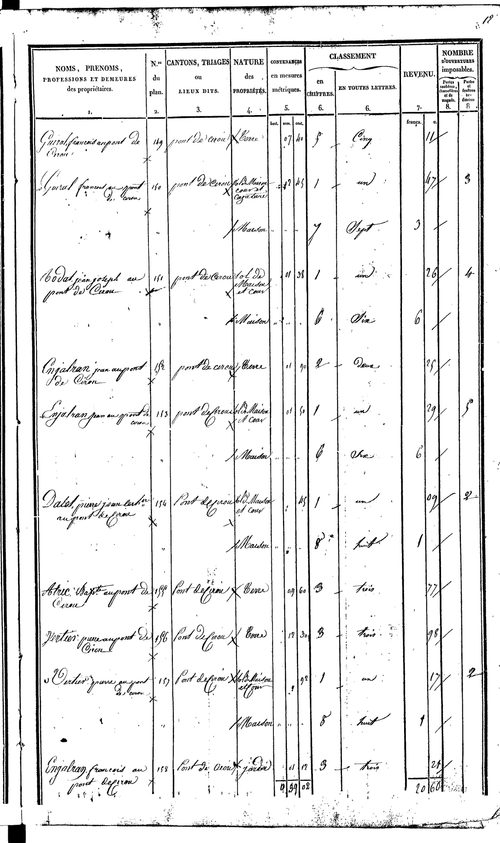 NOMS, PRENOMS,
PROFESSIONS ET DEMEURES
des propriétaires.
1.
N.os
du
plan.
2.
CANTONS, TRIAGES
ou
LIEUX DITS.
3.
NATURE
des
PROPRIÉTÉS.
4.
CONTENANCES
en mesures
métriques.
5.
CLASSEMENT
en
CHIFFRES.
6.
EN TOUTES LETTRES.
6.
REVENU.
7.
NOMBRE
D'OUVERTURES
imposables.
8.
8.
francs. c.
Guiral françois au pont de 149 pont de cirou Terre 07 40 5 Cinq 11
Cirou
Guiral francois au pont 150 pont de cirou sol de Maison 1 un 47 3
de cirou cour et
Maison 7 Sept 3
jean joseph au 151 pont de cirou sol de 01 38 1 un 26 4
pont de Cirou Maison
et cour
Maison 6 Six 6
Enjalran jean au pont 152 pont de cirou Terre 01 90 2 Deux 25
de Cirou
Enjalran jean au pont de 153 pont de Cirou sol de Maison 01 50 1 un 29 5
cirou et cour
Maison 6 Six 6
Dalet pierre jean 154 Pont de cirou sol de Maison 45 1 un 09 2
au pont de Cirou et cour
Maison 8 huit 1
au pont de 155 Pont de Cirou Terre 09 60 3 trois 77
Cirou
pierre au pont de 156 Pont de Cirou Terre 12 30 3 trois 98
Cirou
pierre au pont 157 Pont de Cirou sol de Maison 92 1 un 17 2
de cirou et cour
Maison 8 huit 1
Enjalran francois au 158 Pont de Cirou jardin 01 12 3 trois 21
pont de Cirou
59 02 20 60